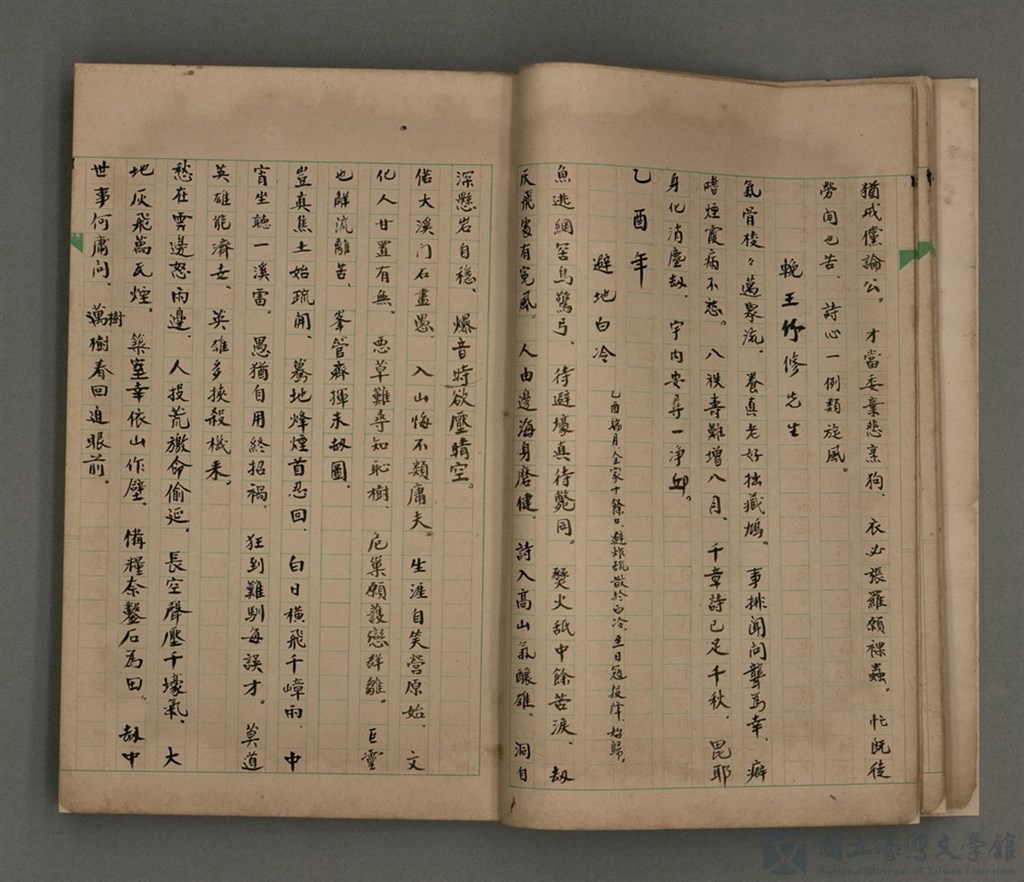 猶戒儻論公。才當委棄悲芻狗、衣必張羅願裸蟲。忙既徒
勞閒也苦、詩心一例類旋風。
輓王竹修先生
氣骨稜々邁眾流、養真老好拙藏鳩。事排閒問聾為幸、癖
嗜煙霞病不愁。八袟壽難增八月、千章詩已足千秋。毘耶
身化消塵劫、宇內安尋一淨邱。
乙酉年
避地白冷
乙酉 月全家十餘口、避炸疏散於白冷、至日寇投降、始歸。
魚逃網罟鳥驚弓、待避壕真待斃同。燹火舐中餘苦淚、劫
灰飛處有冤風。人由邊海身磨健、詩入高山氣釀雄。洞自
深懸岩自穩、爆音時欲壓晴空。
偌大溪門石盡愚、入山悔不類庸夫。生涯自笑營原始、文
化人甘置有無。惡草難尋知恥樹、危巢願護戀群雛。巨靈
也解流離苦、峯管齊揮未劫圖。
豈真焦土始疏開、驀地烽煙首忍回。白日橫飛千嶂雨、中
宵坐聽一溪雷。愚猶自用終招禍、狂到難馴每誤才。莫道
英雄能濟世、英雄多挾殺機來。
愁在雲邊怒雨邊、人投荒激命偷延。長空聲壓千壕氣、大
地灰飛萬瓦煙。築室幸依山作壁、備糧奈鑿石為田。劫中
世事何庸問、萬樹樹春回迫眼前。
國立臺灣文學館
National Museum of Taiwan Literature